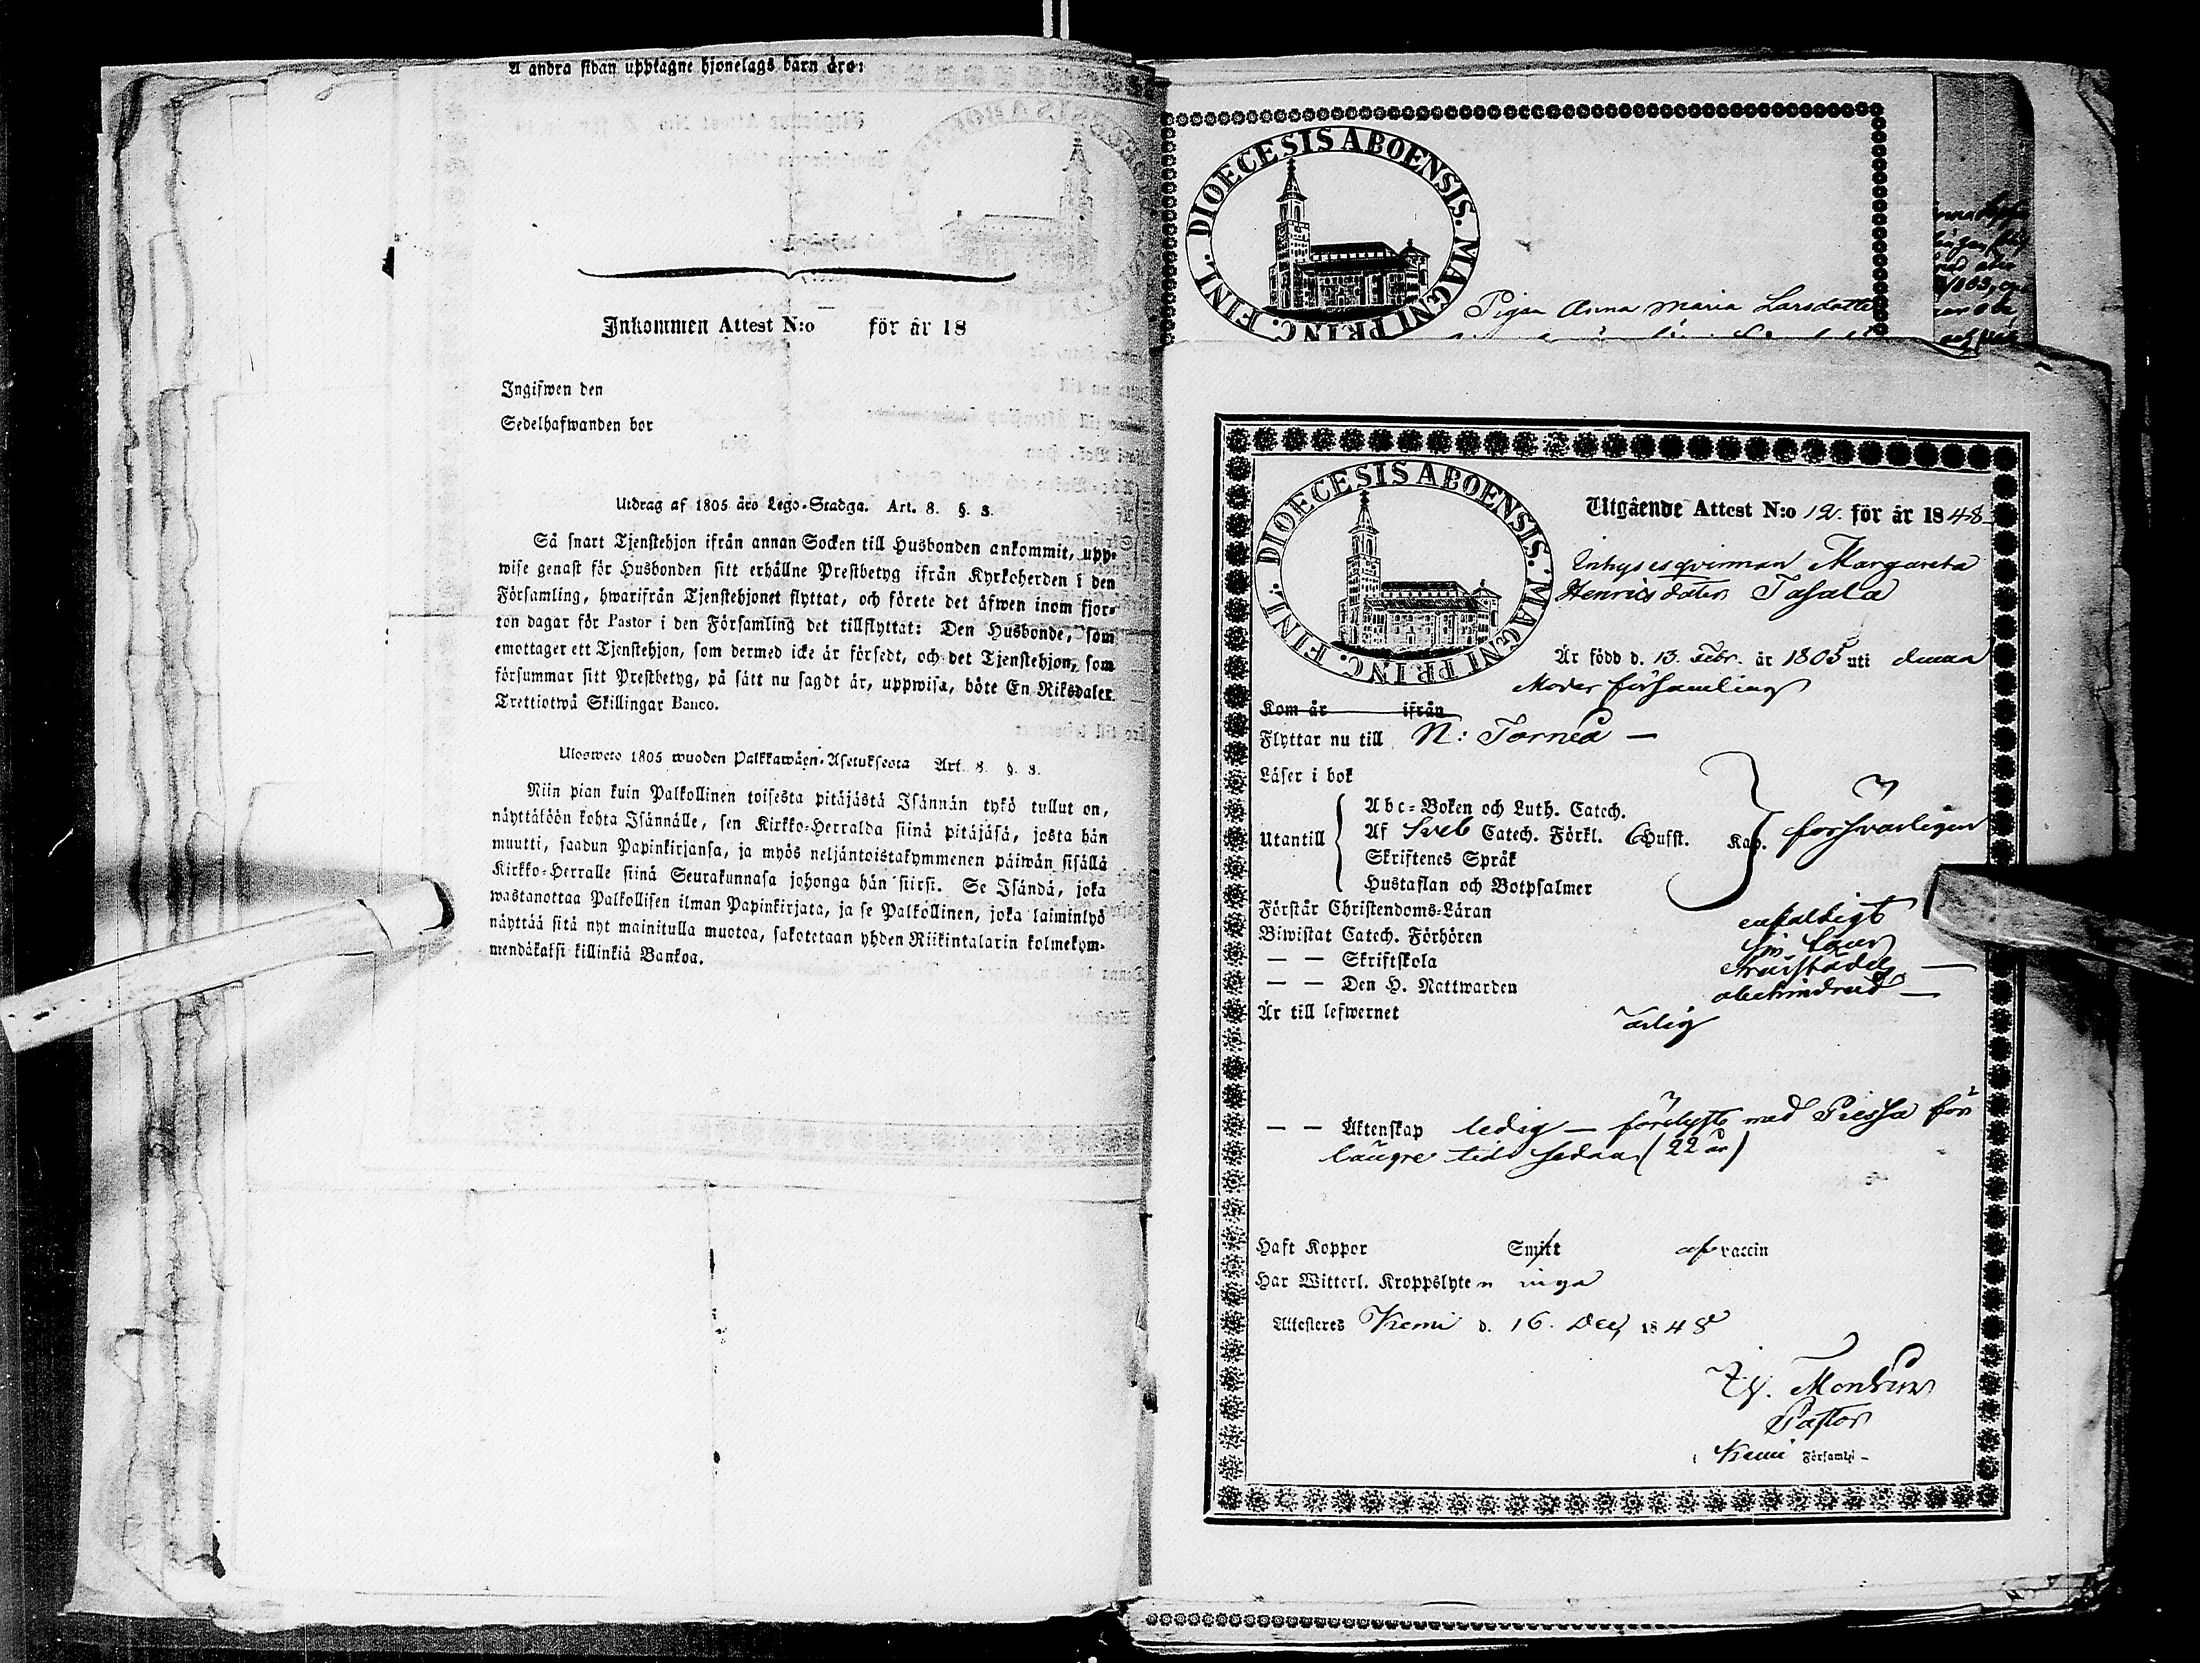 A andra sidan upptagne hjonelags barn äro:
Inkommen Attest N:o för år 18
Ingifwen den
Sedelhafwanden bor
Utdrag af 1805 åro Lego-Stadga. Art. 8. §. 3.
Så snart Tjenstehjon ifrån annan Socken till Husbonden ankommit, upp-
wise genast för Husbonden sitt erhållne Prestbetyg ifrån Kyrkoherden i den
Församling, hwarifrån Tjenstehjonet flyttat, och förete det äfwen inom fjor-
ton dagar för Pastor i den Församling det tillflyttat: Den Husbonde, som
emottager ett Tjenstehjon, som dermed icke är försedt, och det Tjenstehjon, som
försummar sitt Prestbetyg, på sätt nu sagdt är, uppwisa, böte En Riksdaler
Trettiotwå Skillingar Banco.
Ulosweto 1805 wuoden Palkkawäen-Asetuksesta Art. 8. §. 3.
Niin pian kuin Palkollinen toisesta pitäjästä Isännän tykö tullut on,
näyttäköön kohta Isännälle, sen Kirkko-Herralda siinä pitäjäsä, josta hän
muutti, saadun Papinkirjansa, ja myös neljäntoistakymmenen päiwän sisällä
Kirkko-Herralle siinä Seurakunnasa johonga hän siirsi. Se Isändä, joka
wastanottaa Palkollisen ilman Papinkirjata, ja se Palkollinen, joka laiminlyö
näyttää sitä nyt mainitulla muotoa, sakotetaan yhden Riikintalarin kolmekym-
mendäkaksi killinkiä Bankoa.
DIOECESIS ABOENSIS. MAGNI PRINC. FINL.
Pigan Anna Maria Larsdotter
DIOECESIS ABOENSIS. MAGNI PRINC. FINL.
Utgående Attest N:o 12. för år 1848
Inhysesqvinnan Margareta
Henricsdoter Tasala
Är född d. 13. Febr. år 1805 uti denna
Moder församling
Kom år ifrån
Flyttar nu till N: Torneå —
Läser i bok
Utantill
Abc-Boken och Luth. Catech.
Af Sveb Catech. Förkl. 6 Hufst. Kap. försvarligen
Skriftenes Språk
Hustaflan och Botpsalmer
Förstår Christendoms-Läran enfaldigt
Biwistat Catech. Förhören
— — Skriftskola
— — Den H. Nattwarden obehindrad —
Är till lefwernet ärlig
— — Äktenskap ledig — förelyfte med Piessa för
längre tid sedan (22 år)
Haft Koppor Smitt af vaccin
Har Witterl. Kroppslyten inga
Attesteres Kemi d. 16. Dec, 1848
Pastor
i Kemi Församl